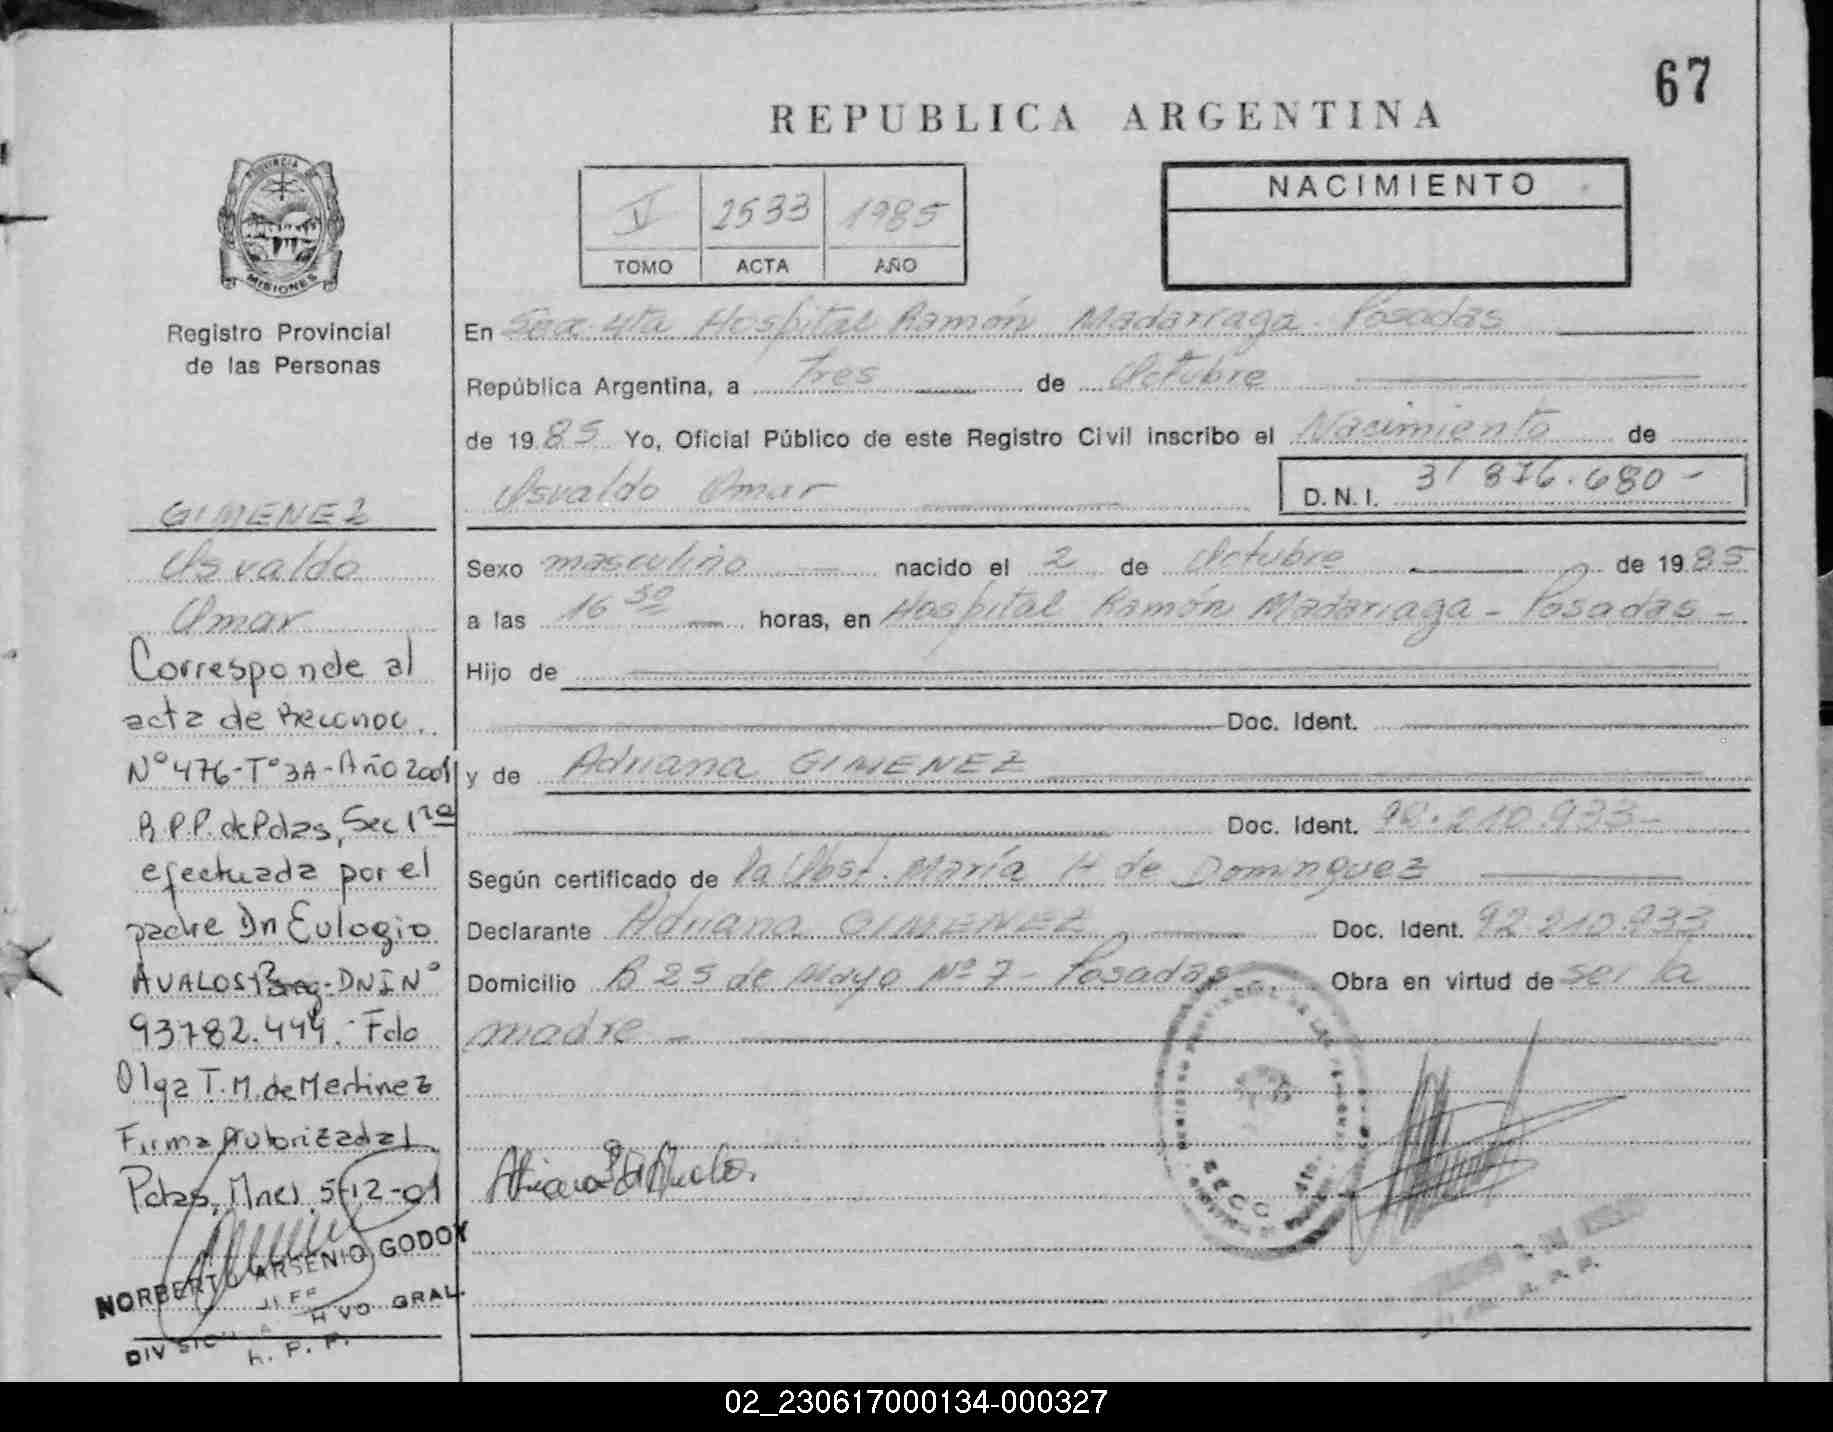 67
REPUBLICA ARGENTINA
PROVINCIA DE
MISIONES
Registro Provincial
de las Personas
V 2533 1985
TOMO ACTA AÑO
NACIMIENTO
En Secc. 4ta Hospital Ramón Madarriaga. Posadas
República Argentina, a Tres de Octubre
de 1985 Yo, Oficial Público de este Registro Civil inscribo el Nacimiento de
Osvaldo Omar
D.N.I. 31 876.680-
Sexo masculino nacido el 2 de Octubre de 1985
a las 16 50 horas, en Hospital Ramón Madariaga - Posadas -
Hijo de
Doc. Ident.
y de Adriana GIMENEZ
Doc. Ident. 92.210.933-
Según certificado de la Obst. María H de Dominguez
Declarante Adriana GIMENEZ Doc. Ident. 92 210.933
Domicilio B 25 de Mayo Nº 7 - Posadas Obra en virtud de ser la
madre -
GIMENEZ
Osvaldo
Omar
Corresponde al
acta de Reconoc.
Nº 476-Tº 3A-Año 2001
R.P.P. de Pdas, Sec 1ra
efectuada por el
padre Dn Eulogio
AVALOS DNI Nº
93782.444. Fdo
Olga T.M. de Mertinez
Firma Autorizada
Pdas, Mnes, 5-12-01
NORBERTO ARSENIO GODOY
JEFE
DIVISION ARCHIVO GRAL.
R. P. P.
SECC 4ta.
R. P. P.
02_230617000134-000327